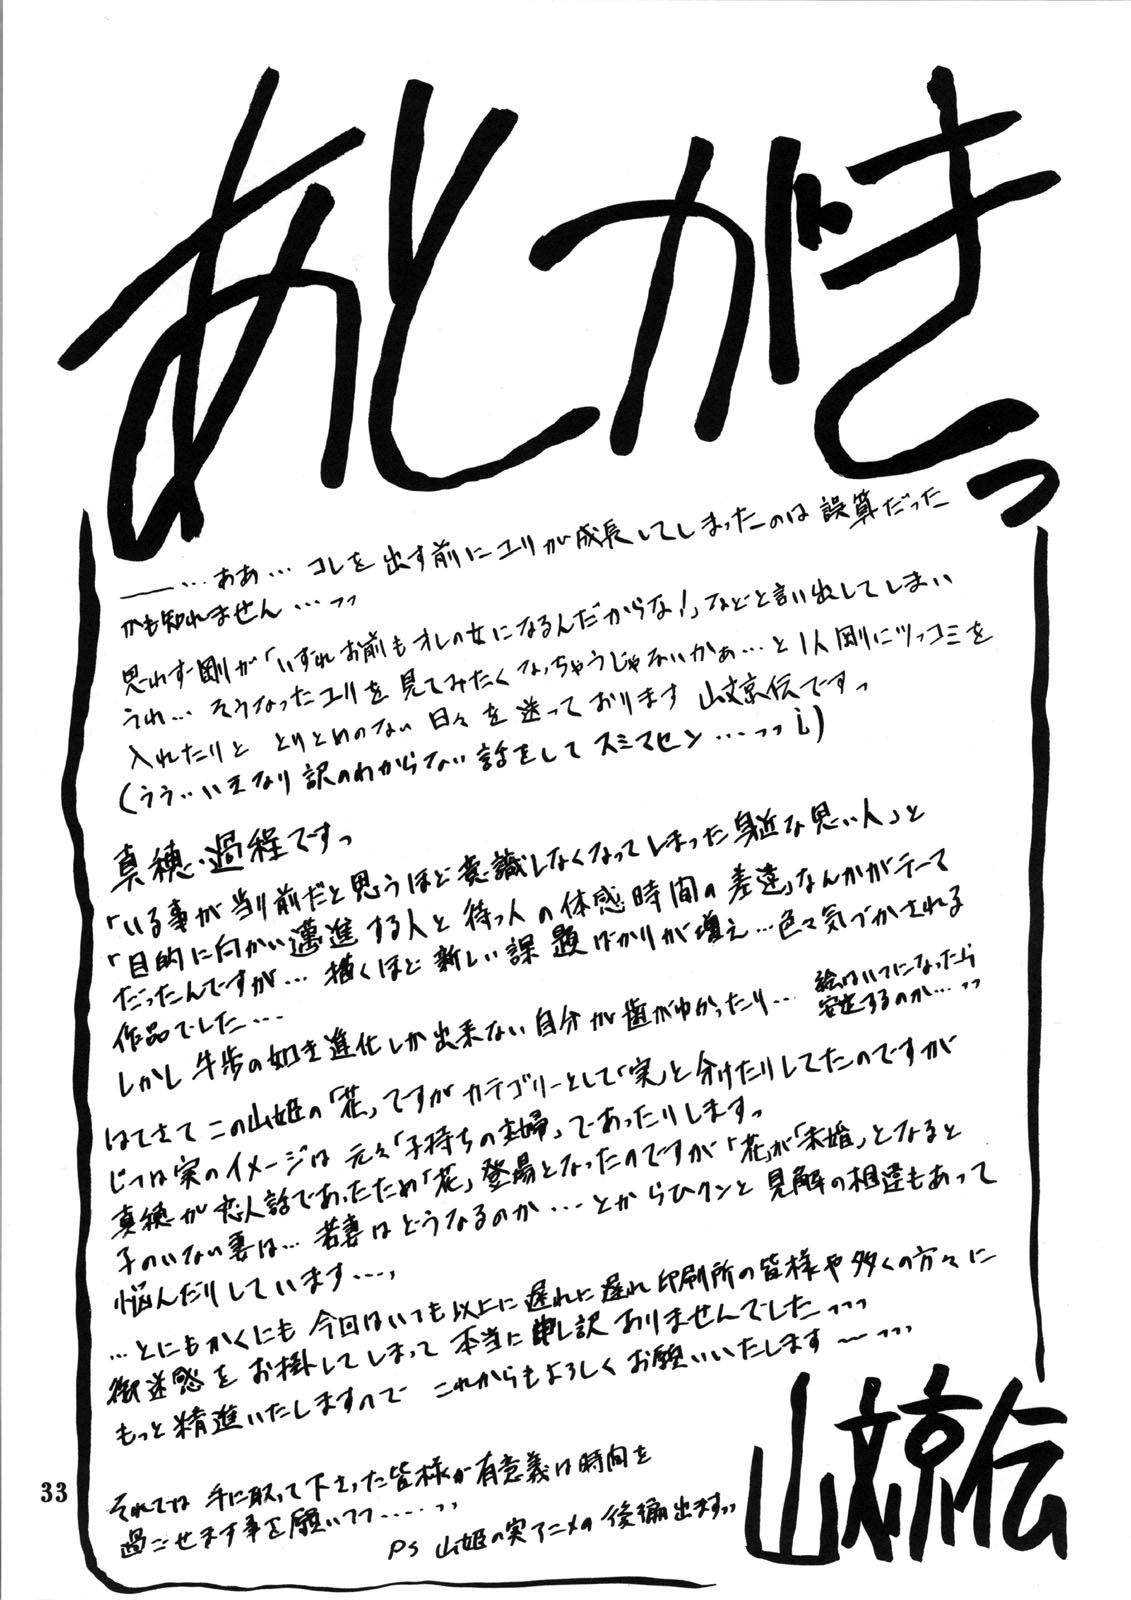 あとがきっ
――…ああ…コレを出す前にユリが成長してしまったのは誤算だった
かも知れません…ッッ
思わず剛が「いずれお前もオレの女になるんだからな!」などと言い出してしまい
うれ…そうなったユリを見てみたくなっちゃうじゃないかぁ…と1人剛にツッコミを
入れたりと とりとめのない日々を送っております 山文京伝ですっ
(うう…いきなり訳のわからない話をしてスミマセン…ッッ;)
真穂・過程ですっ
「いる事が当り前だと思うほど意識しなくなってしまった身近な思い人」と
「目的に向かい邁進する人と待つ人の体感時間の差違」なんかがテーマ
だったんですが…描くほど新しい課題ばかりが増え…色々気づかされる
作品でした…
しかし牛歩の如き進化しか出来ない自分が歯がゆかったり…
絵はいつになったら
安定するのか…ッッ
はてさてこの山姫の「花」ですがカテゴリーとして「実」と分けたりしてたのですが
じつは実のイメージは元々「子持ちの主婦」であったりしますっ
真穂が恋人話であったため「花」登場となったのですが「花」が「未婚」となると
子のいない妻は…若妻はどうなるのか…とからひクンと見解の相違もあって
悩んだりしています…、
…とにもかくにも今回はいつも以上に遅れに遅れ印刷所の皆様や多くの方々に
御迷惑をお掛してしまって本当に申し訳ありませんでした…ッッ
もっと精進いたしますので これからもよろしくお願いいたします〜…ッッ
それでは手に取って下さった皆様が有意義な時間を
過ごせます事を願いつつ……ッッ
PS 山姫の実アニメの後編出ますッッ
山文京伝
33